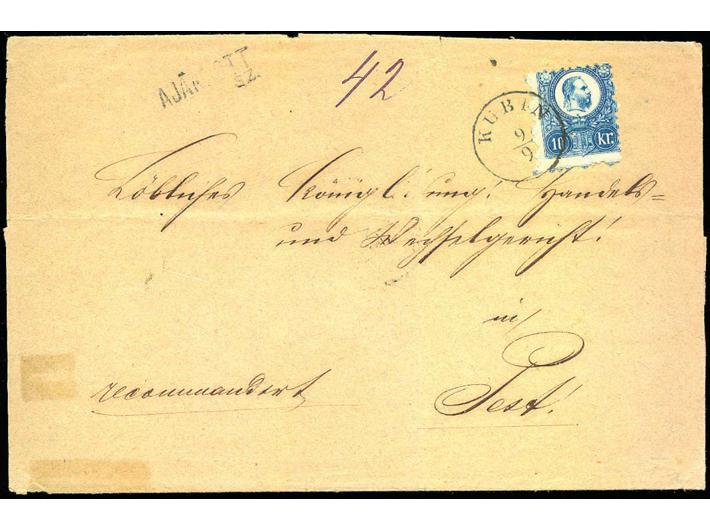 AJÁNLOTT
SZ.
42
KUBIN
9/9
10 kr.
Löbliches Königl: ung: Handels=
und Wechselgericht!
in
recommandirt
Pest!